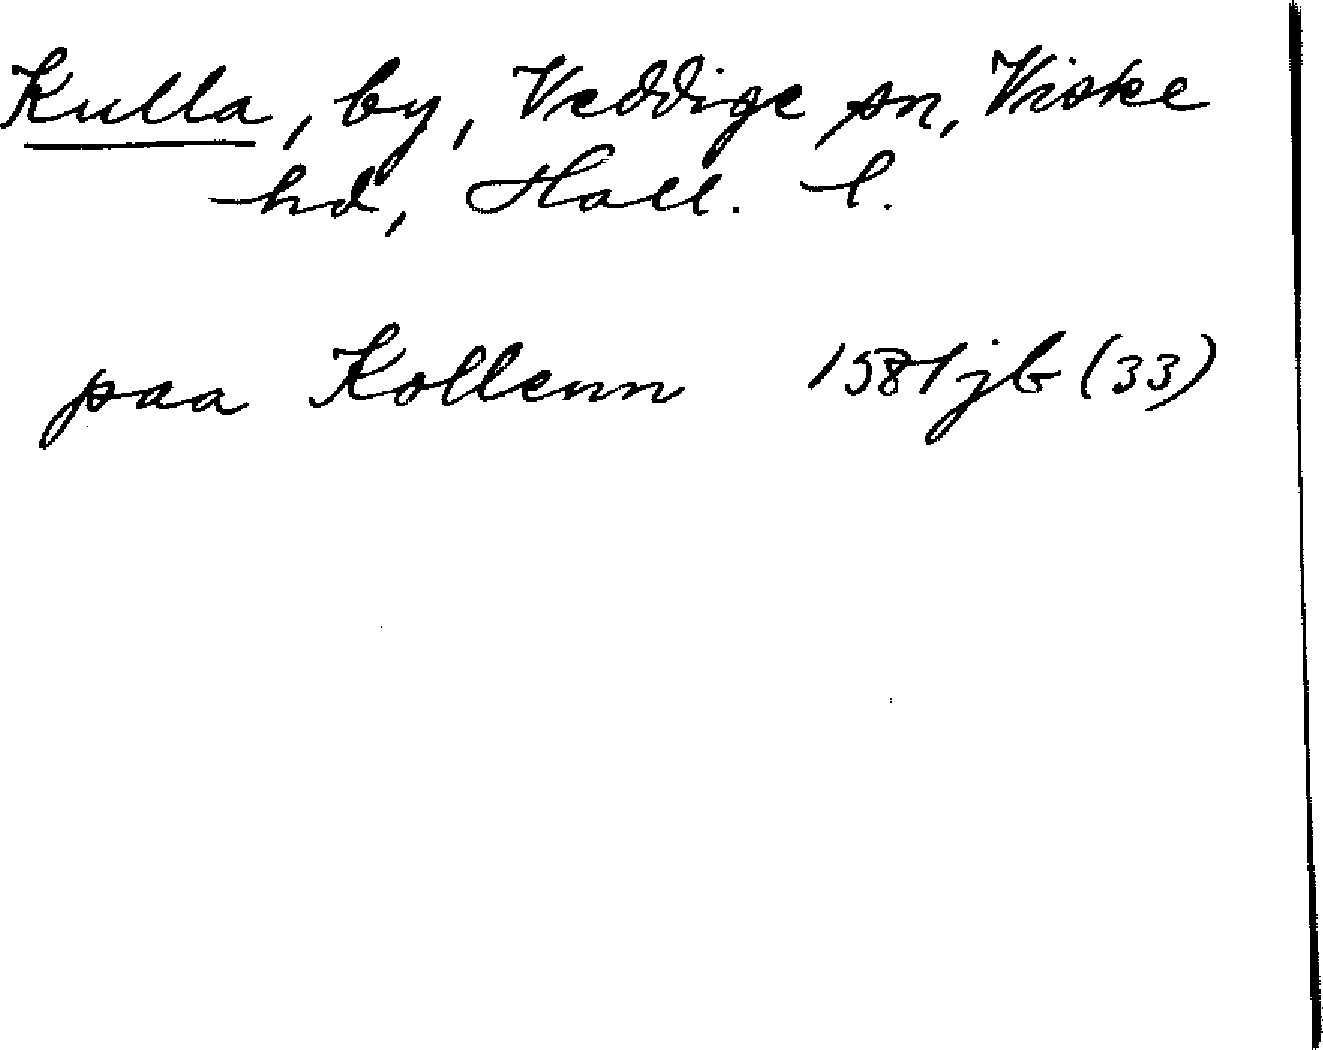 Kulla, by, Veddige sn, Viske
hd, Hall. l.
paa Kollenn 1581 jb (33)